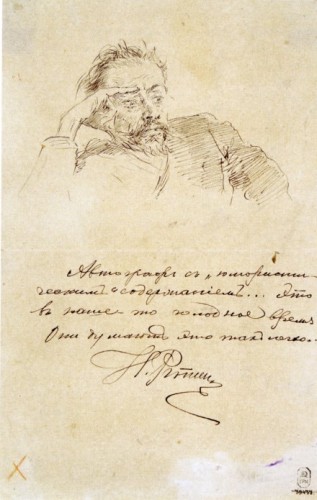 Автографъ съ „юмористи-
ческимъ“ содержаніемъ... Это
въ наше то голодное время
Они думаютъ это такъ легко...
И. Рѣпин